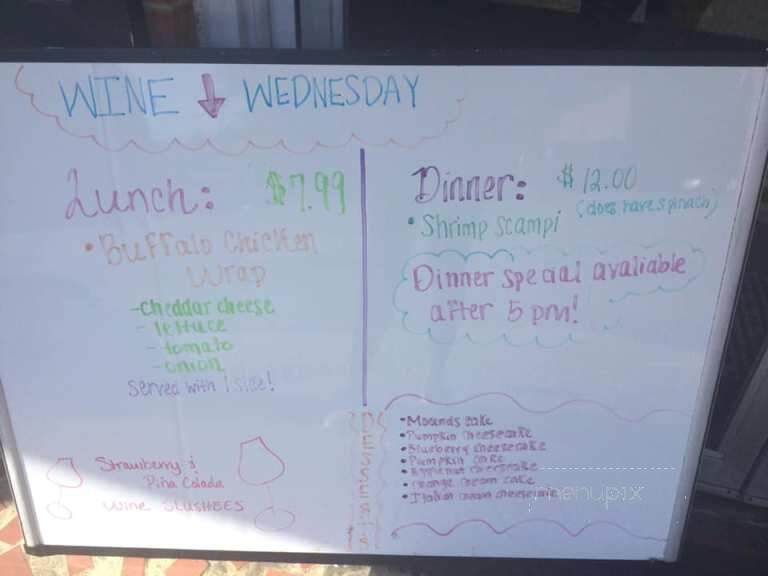 WINE WEDNESDAY
Lunch: $7.99
• Buffalo Chicken
Wrap
-Cheddar cheese
- lettuce
- tomato
- onion
Served with 1 side!
Strawberry &
Piña Colada
Wine Slushees
Dinner: $12.00
(does have spinach)
• Shrimp Scampi
Dinner special avaliable
after 5 pm!
• Mounds cake
• Pumpkin cheesecake
• Blueberry cheesecake
• Pumpkin cake
cheesecake
• orange cream cake
• Italian cream cheesecake
menupix